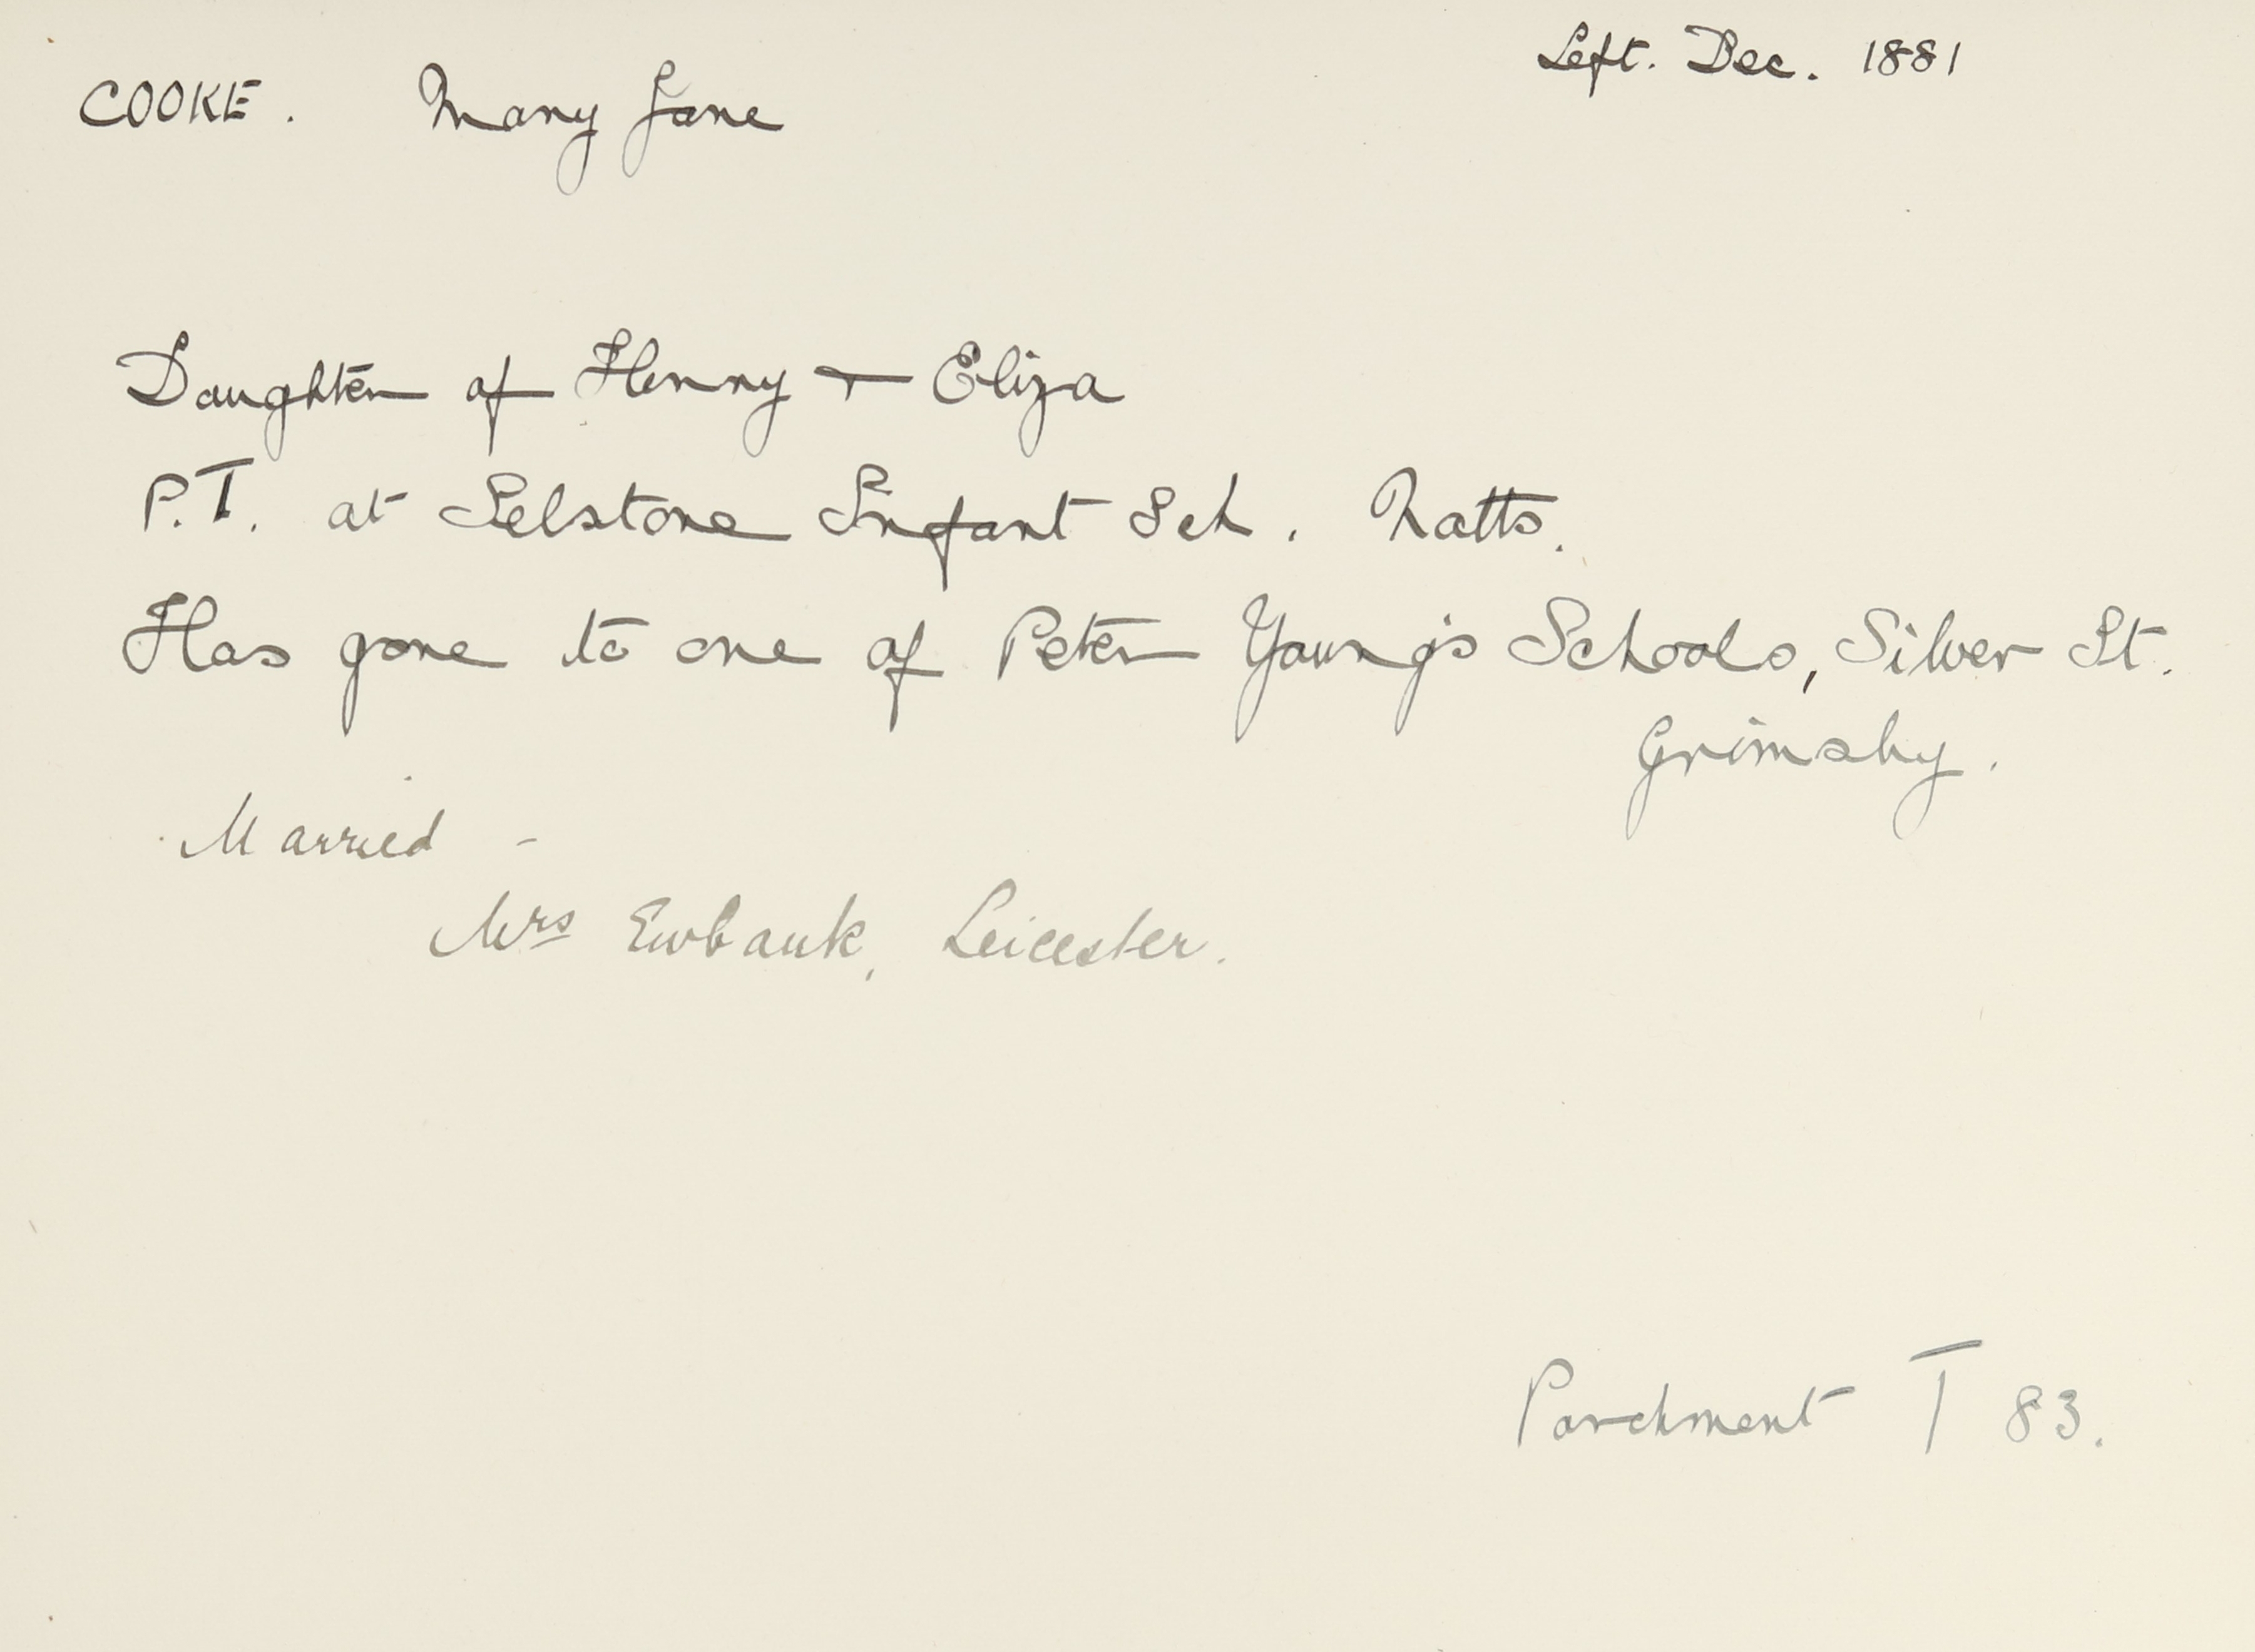 Left. Dec. 1881
COOKE. Mary Jane
Daughter of Henry + Eliza
P.T. at Selstone Infant Sch. Notts.
Has gone to one of Peter Young's Schools, Silver St.
Grimsby.
Married -
Mrs Ewbank, Leicester.
Parchment T 83.